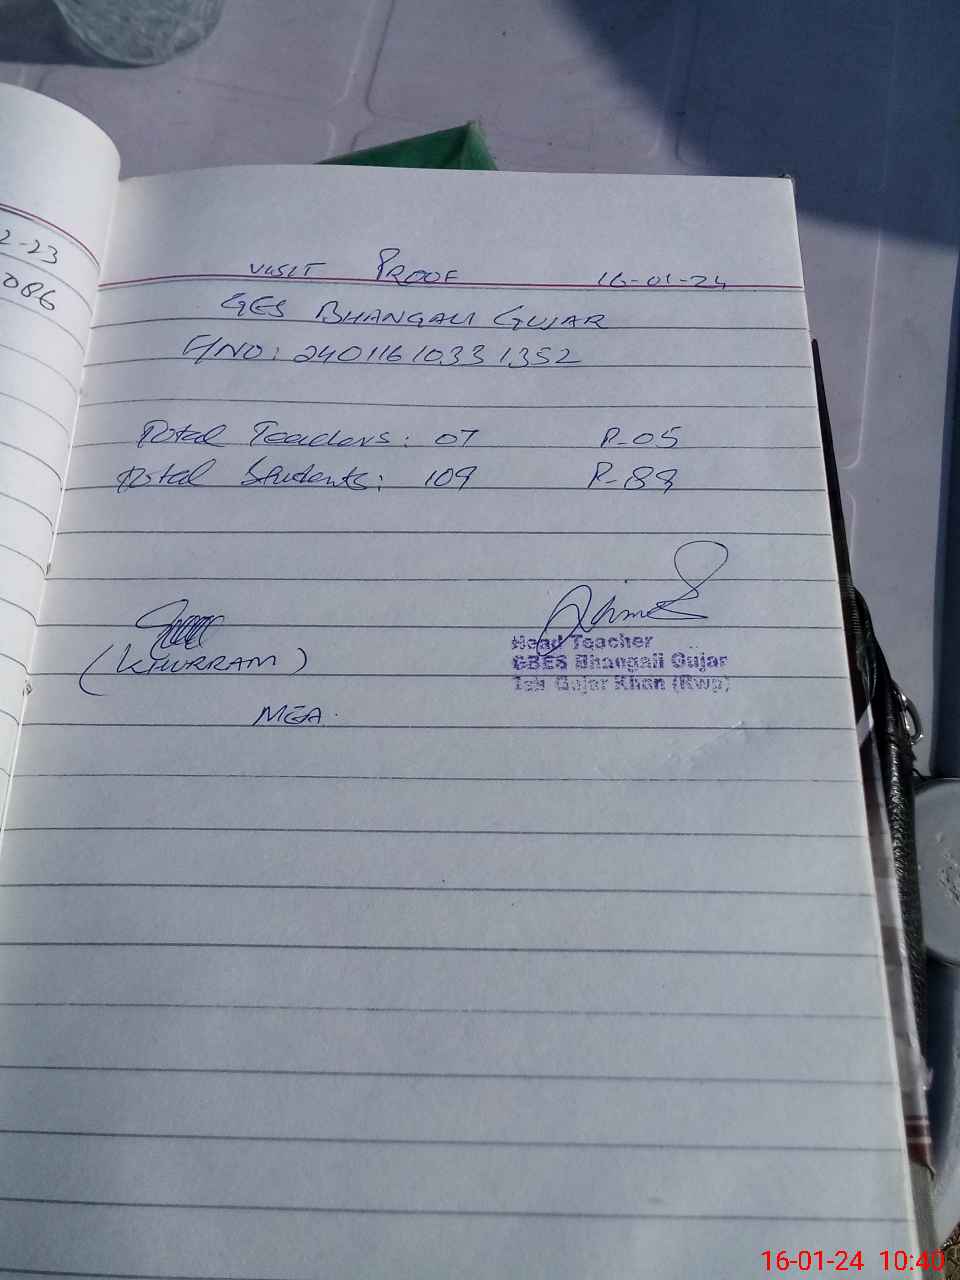 2-23
086
VISIT PROOF 16-01-24
GES BHANGALI GUJAR
F/NO: 24011610331352
Total Teachers: 07 P-05
Total Students: 109 P-89
(KHURRAM)
MEA.
Head Teacher
GBES Bhangali Gujar
Teh Gujar Khan (Rwp)
16-01-24 10:40